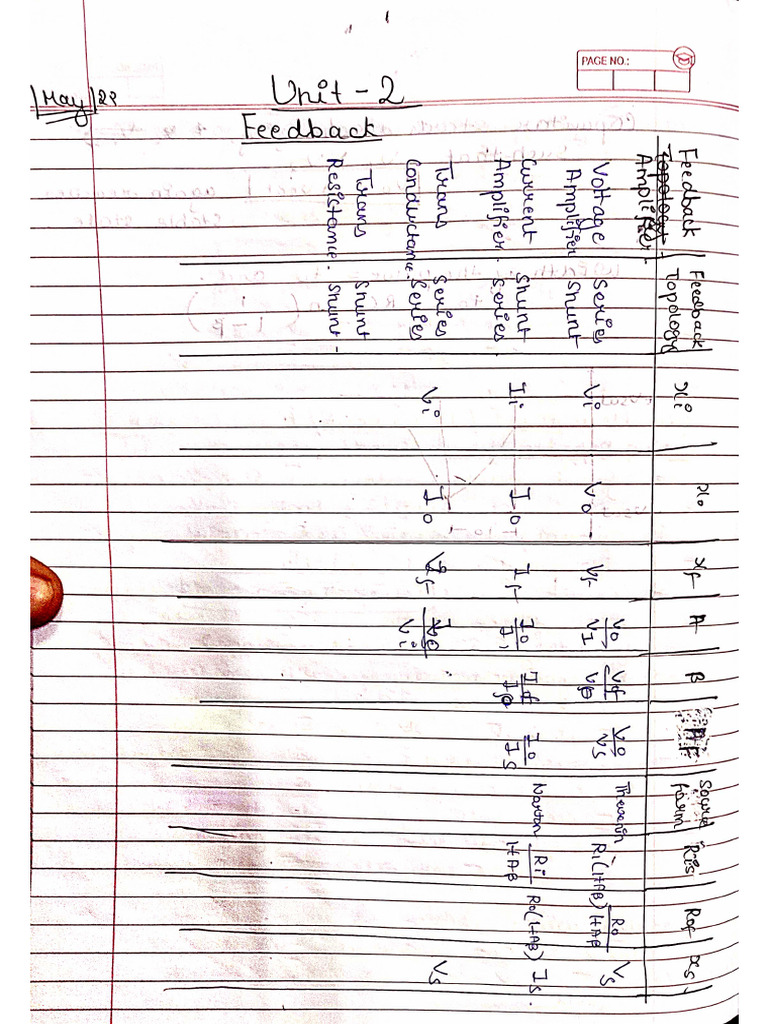 PAGE NO.:
|May|23
Unit-2
Feedback
Feedback Amplifier. | Feedback Topology | xi | xo | xf | A | B | AF | Source form | Ris | Rof | xs
Voltage Amplifier | Series Shunt | Vi | Vo | Vf | Vo/VI | Vf/Vo | Vo/Vs | Thevenin | Ri(1+AB) | Ro/1+AB | Vs
Current Amplifier. | Shunt Series. | Ii | Io | If | Io/Ii | If/Io | Io/Is | Norton | Ri/1+AB | Ro(1+AB) | Is.
Trans Conductance. | Series Series | Vi | Io | Vf | Io/Vi | Vs
Trans Resistance. | Shunt Shunt -